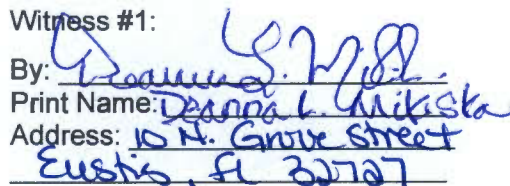 Witness #1:
By: Deanna L. Mik
Print Name: Deanna L. Mikiska
Address: 10 N. Grove Street
Eustis, FL 32727